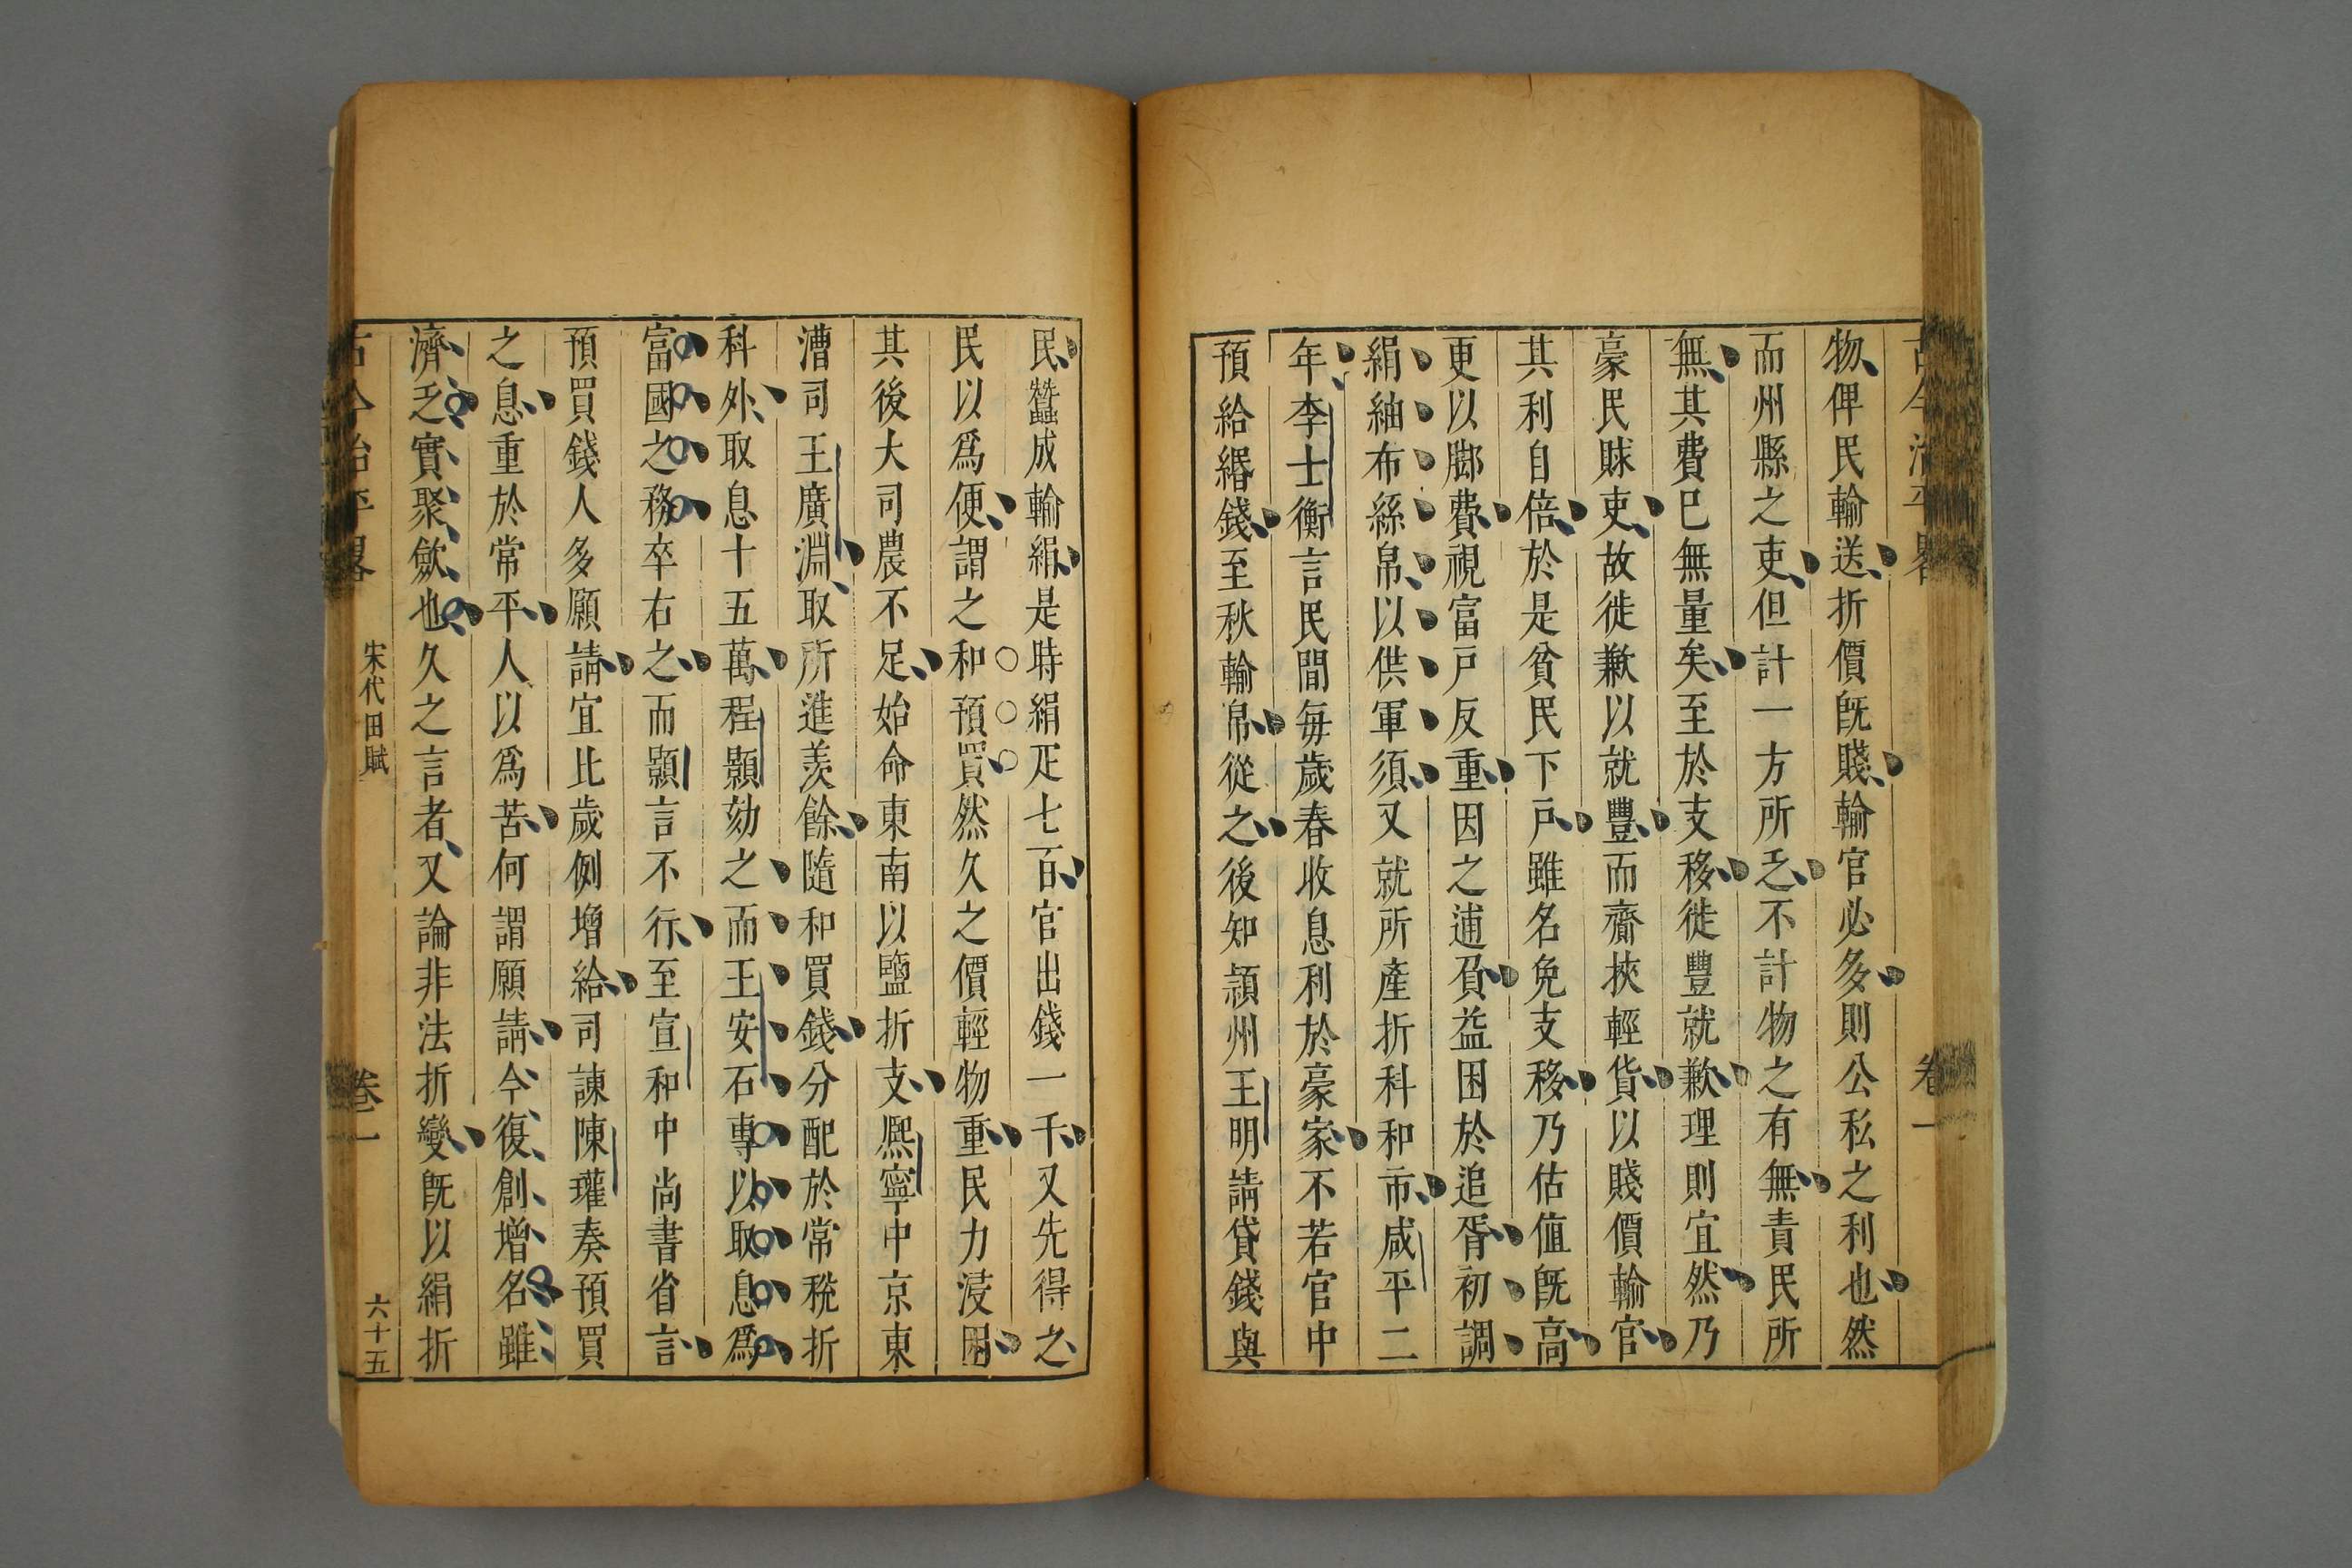 古今治平畧 卷一
物俾民輸送折價旣賤輸官必多則公私之利也然
而州縣之吏但計一方所乏不計物之有無責民所
無其費已無量矣至於支移徙豐就歉理則宜然乃
豪民賕吏故徙歉以就豐而齎挾輕貨以賤價輸官
其利自倍於是貧民下戶雖名免支移乃估值旣高
更以脚費視富戶反重因之逋負益困於追胥初調
絹紬布絲帛以供軍須又就所產折科和市咸平二
年李士衡言民間每歲春收息利於豪家不若官中
預給緡錢至秋輸帛從之後知潁州王明請貸錢與
民蠶成輸絹是時絹疋七百官出錢一千又先得之
民以爲便謂之和預買然久之價輕物重民力浸困
其後大司農不足始命東南以鹽折支熈寧中京東
漕司王廣淵取所進羨餘隨和買錢分配於常稅折
科外取息十五萬程顥劾之而王安石專以取息爲
富國之務卒右之而顥言不行至宣和中尚書省言
預買錢人多願請宜比歲例增給司諫陳瓘奏預買
之息重於常平人以爲苦何謂願請今復創增名雖
濟乏實聚歛也久之言者又論非法折變旣以絹折
古今治平畧 宋代田賦 卷一 六十五